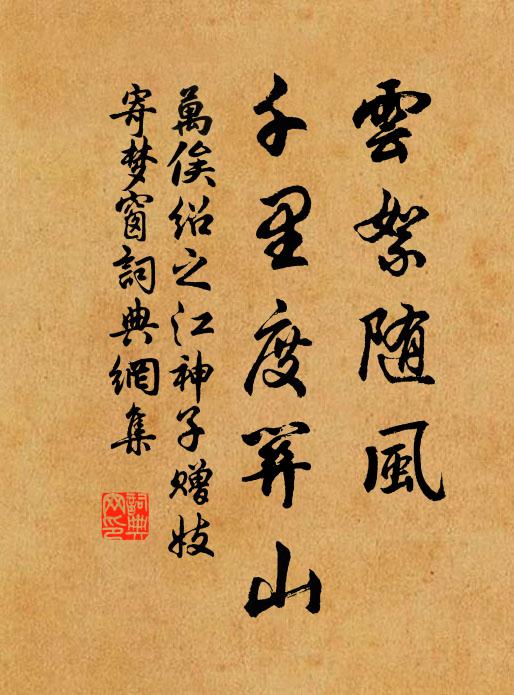 雲絮随風
千里度關山
萬俟紹之江神子贈妓
寄梦窗詞典網集
詞典
网印